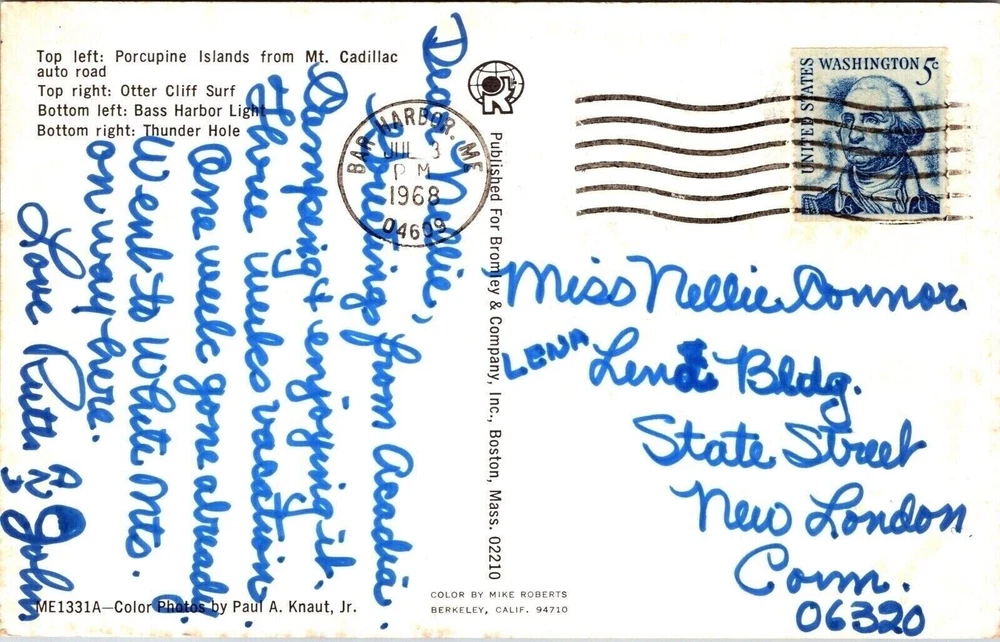 Top left: Porcupine Islands from Mt. Cadillac
auto road
Top right: Otter Cliff Surf
Bottom left: Bass Harbor Light
Bottom right: Thunder Hole
Dear Nellie,
Greetings from Acadia.
Camping & enjoying it.
Three weeks vacation,
One week gone already.
Went to White Mts.
on way here.
Love Ruth
AND John
ME1331A—Color Photos by Paul A. Knaut, Jr.
BAR HARBOR, ME
JUL 3
PM
1968
04609
Published For Bromley & Company, Inc., Boston, Mass. 02210
COLOR BY MIKE ROBERTS
BERKELEY, CALIF. 94710
UNITED STATES
WASHINGTON 5c
Miss Nellie Connor
LENA
Lena Bldg.
State Street
New London
Conn.
06320